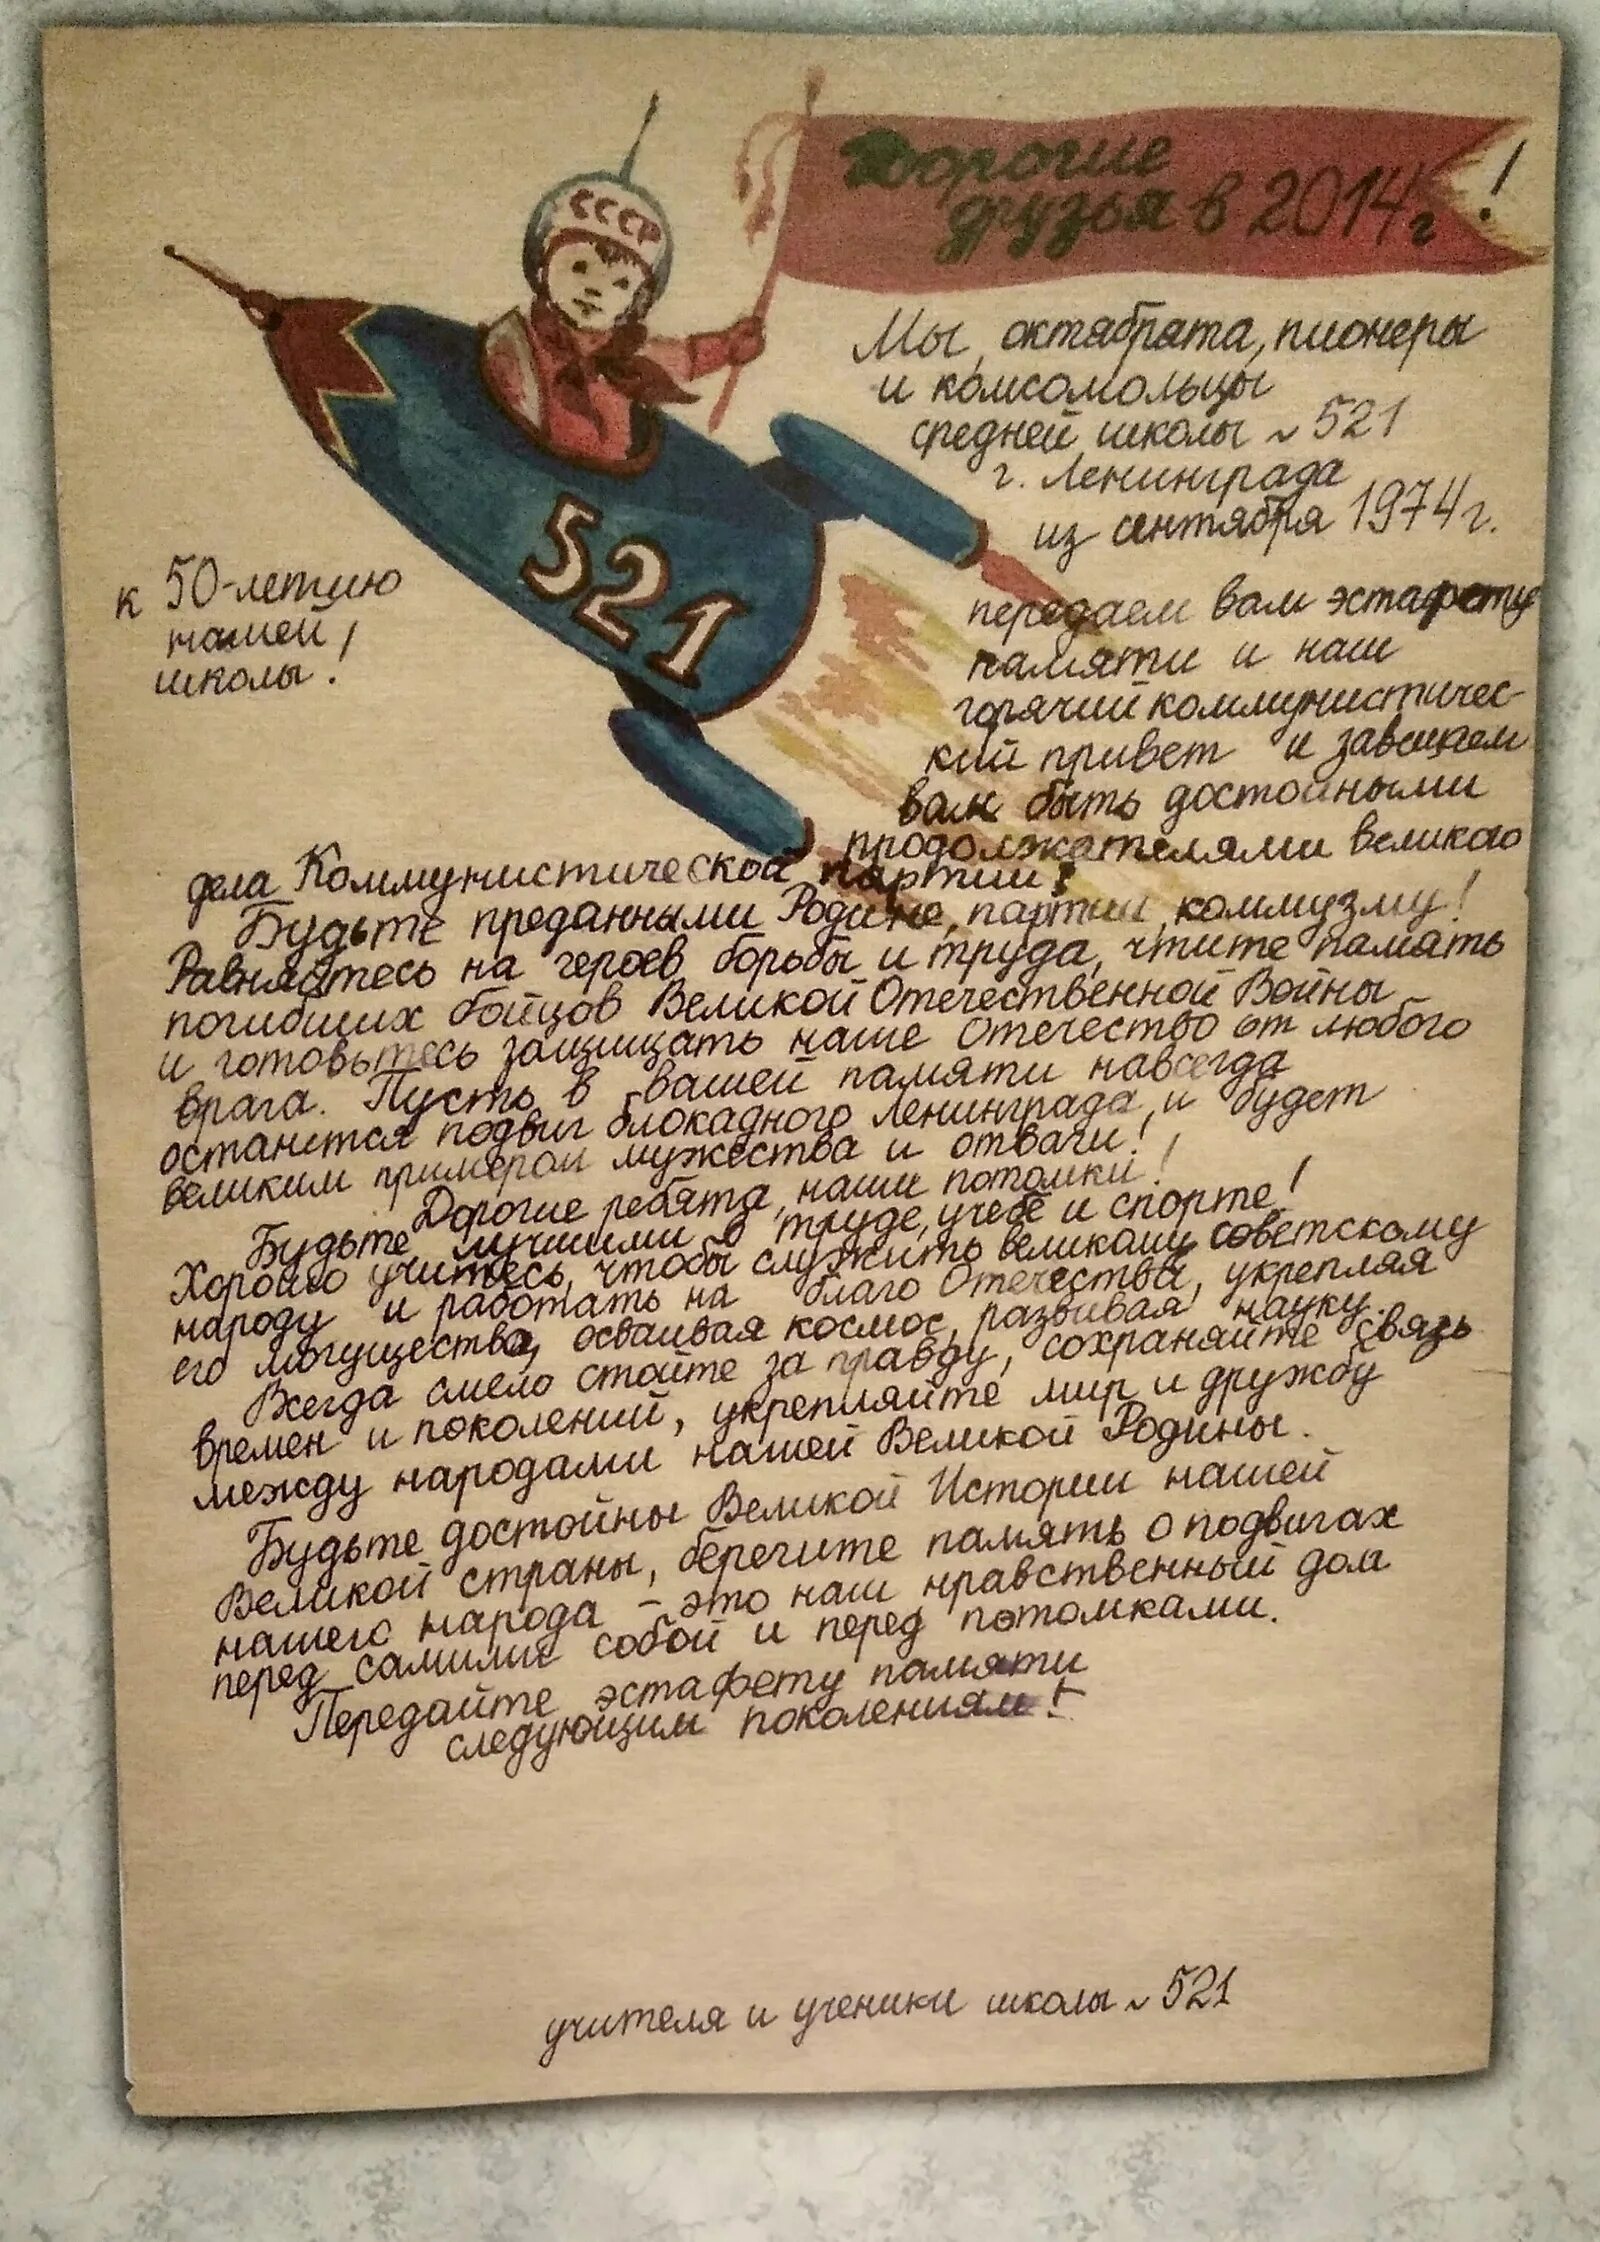 Дорогие
друзья в 2014 г!
СССР
521
к 50-летию
нашей
школы!
Мы, октябрята, пионеры
и комсомольцы
средней школы № 521
г. Ленинграда
из сентября 1974 г.
передаем вам эстафету
памяти и наш
горячий коммунистичес-
кий привет и завещаем
вам быть достойными
продолжателями великого
дела Коммунистической партии!
Будьте преданными Родине, партии, коммузму!
Равняйтесь на героев борьбы и труда, чтите память
погибших бойцов Великой Отечественной Войны
и готовьтесь защищать наше Отечество от любого
врага. Пусть в вашей памяти навсегда
останется подвиг блокадного Ленинграда, и будет
великим примером мужества и отваги!
Дорогие ребята, наши потомки!
Будьте лучшими в труде, учебе и спорте!
Хорошо учитесь, чтобы служить великому советскому
народу и работать на благо Отечества, укрепляя
его могущество, осваивая космос, развивая науку.
Всегда смело стойте за правду, сохраняйте связь
времен и поколений, укрепляйте мир и дружбу
между народами нашей Великой Родины.
Будьте достойны Великой Истории нашей
Великой страны, берегите память о подвигах
нашего народа – это наш нравственный долг
перед самими собой и перед потомками.
Передайте эстафету памяти
следующим поколениям!
учителя и ученики школы № 521